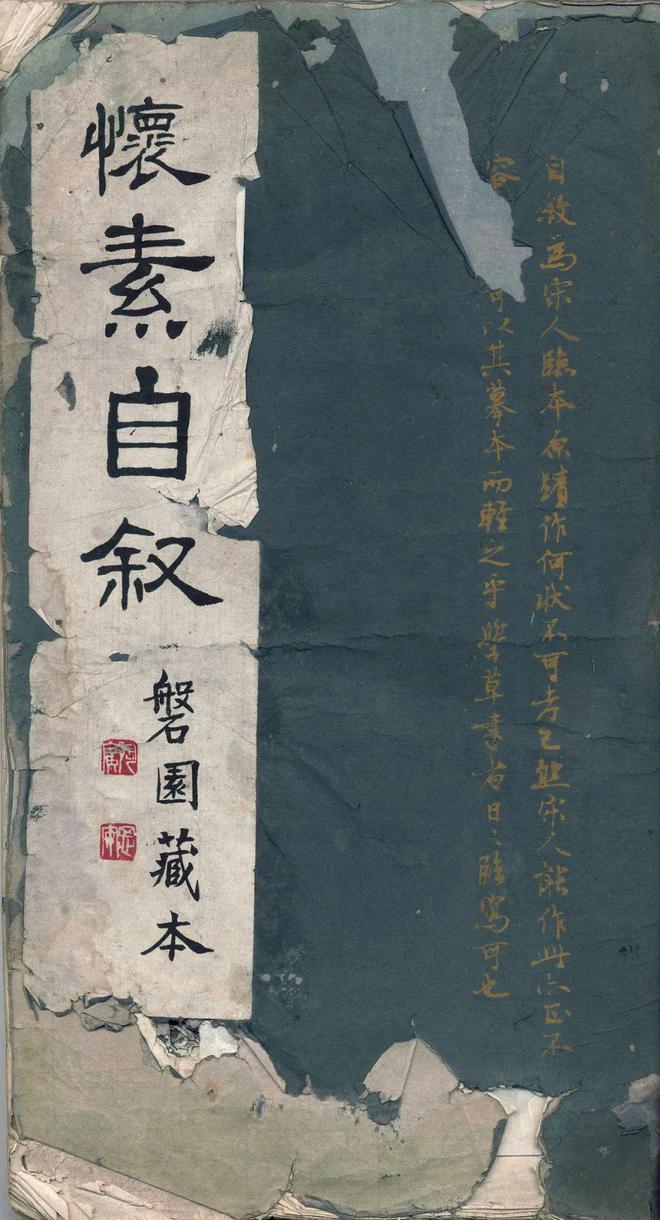 自敘為宋人臨本原蹟作何狀不可考已然宋人能作此亦正不
容可以其摹本而輕之乎學草書者日〻臨寫可也
懷素自叙
磐園藏本